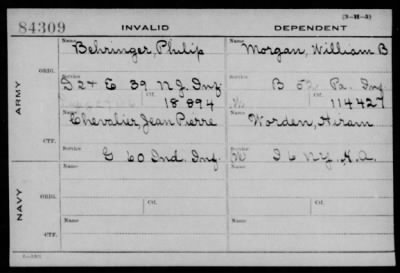 (3-H-3)
84309 INVALID DEPENDENT
Name Name
Behringer, Philip Morgan, William B
ORIG. Service Service
D 2+ E 39 N.J. Inf B 52 Pa. Inf
Ctf. Ctf.
18894 W 114427
ARMY
Name Name
Chevalier, Jean Pierre Worden, Hiram
CTF. Service Service
G 60 Ind. Inf. W I 6 N.Y. H.A.
Name Name
ORIG. Service Service
Ctf. Ctf.
NAVY
Name Name
CTF. Service Service